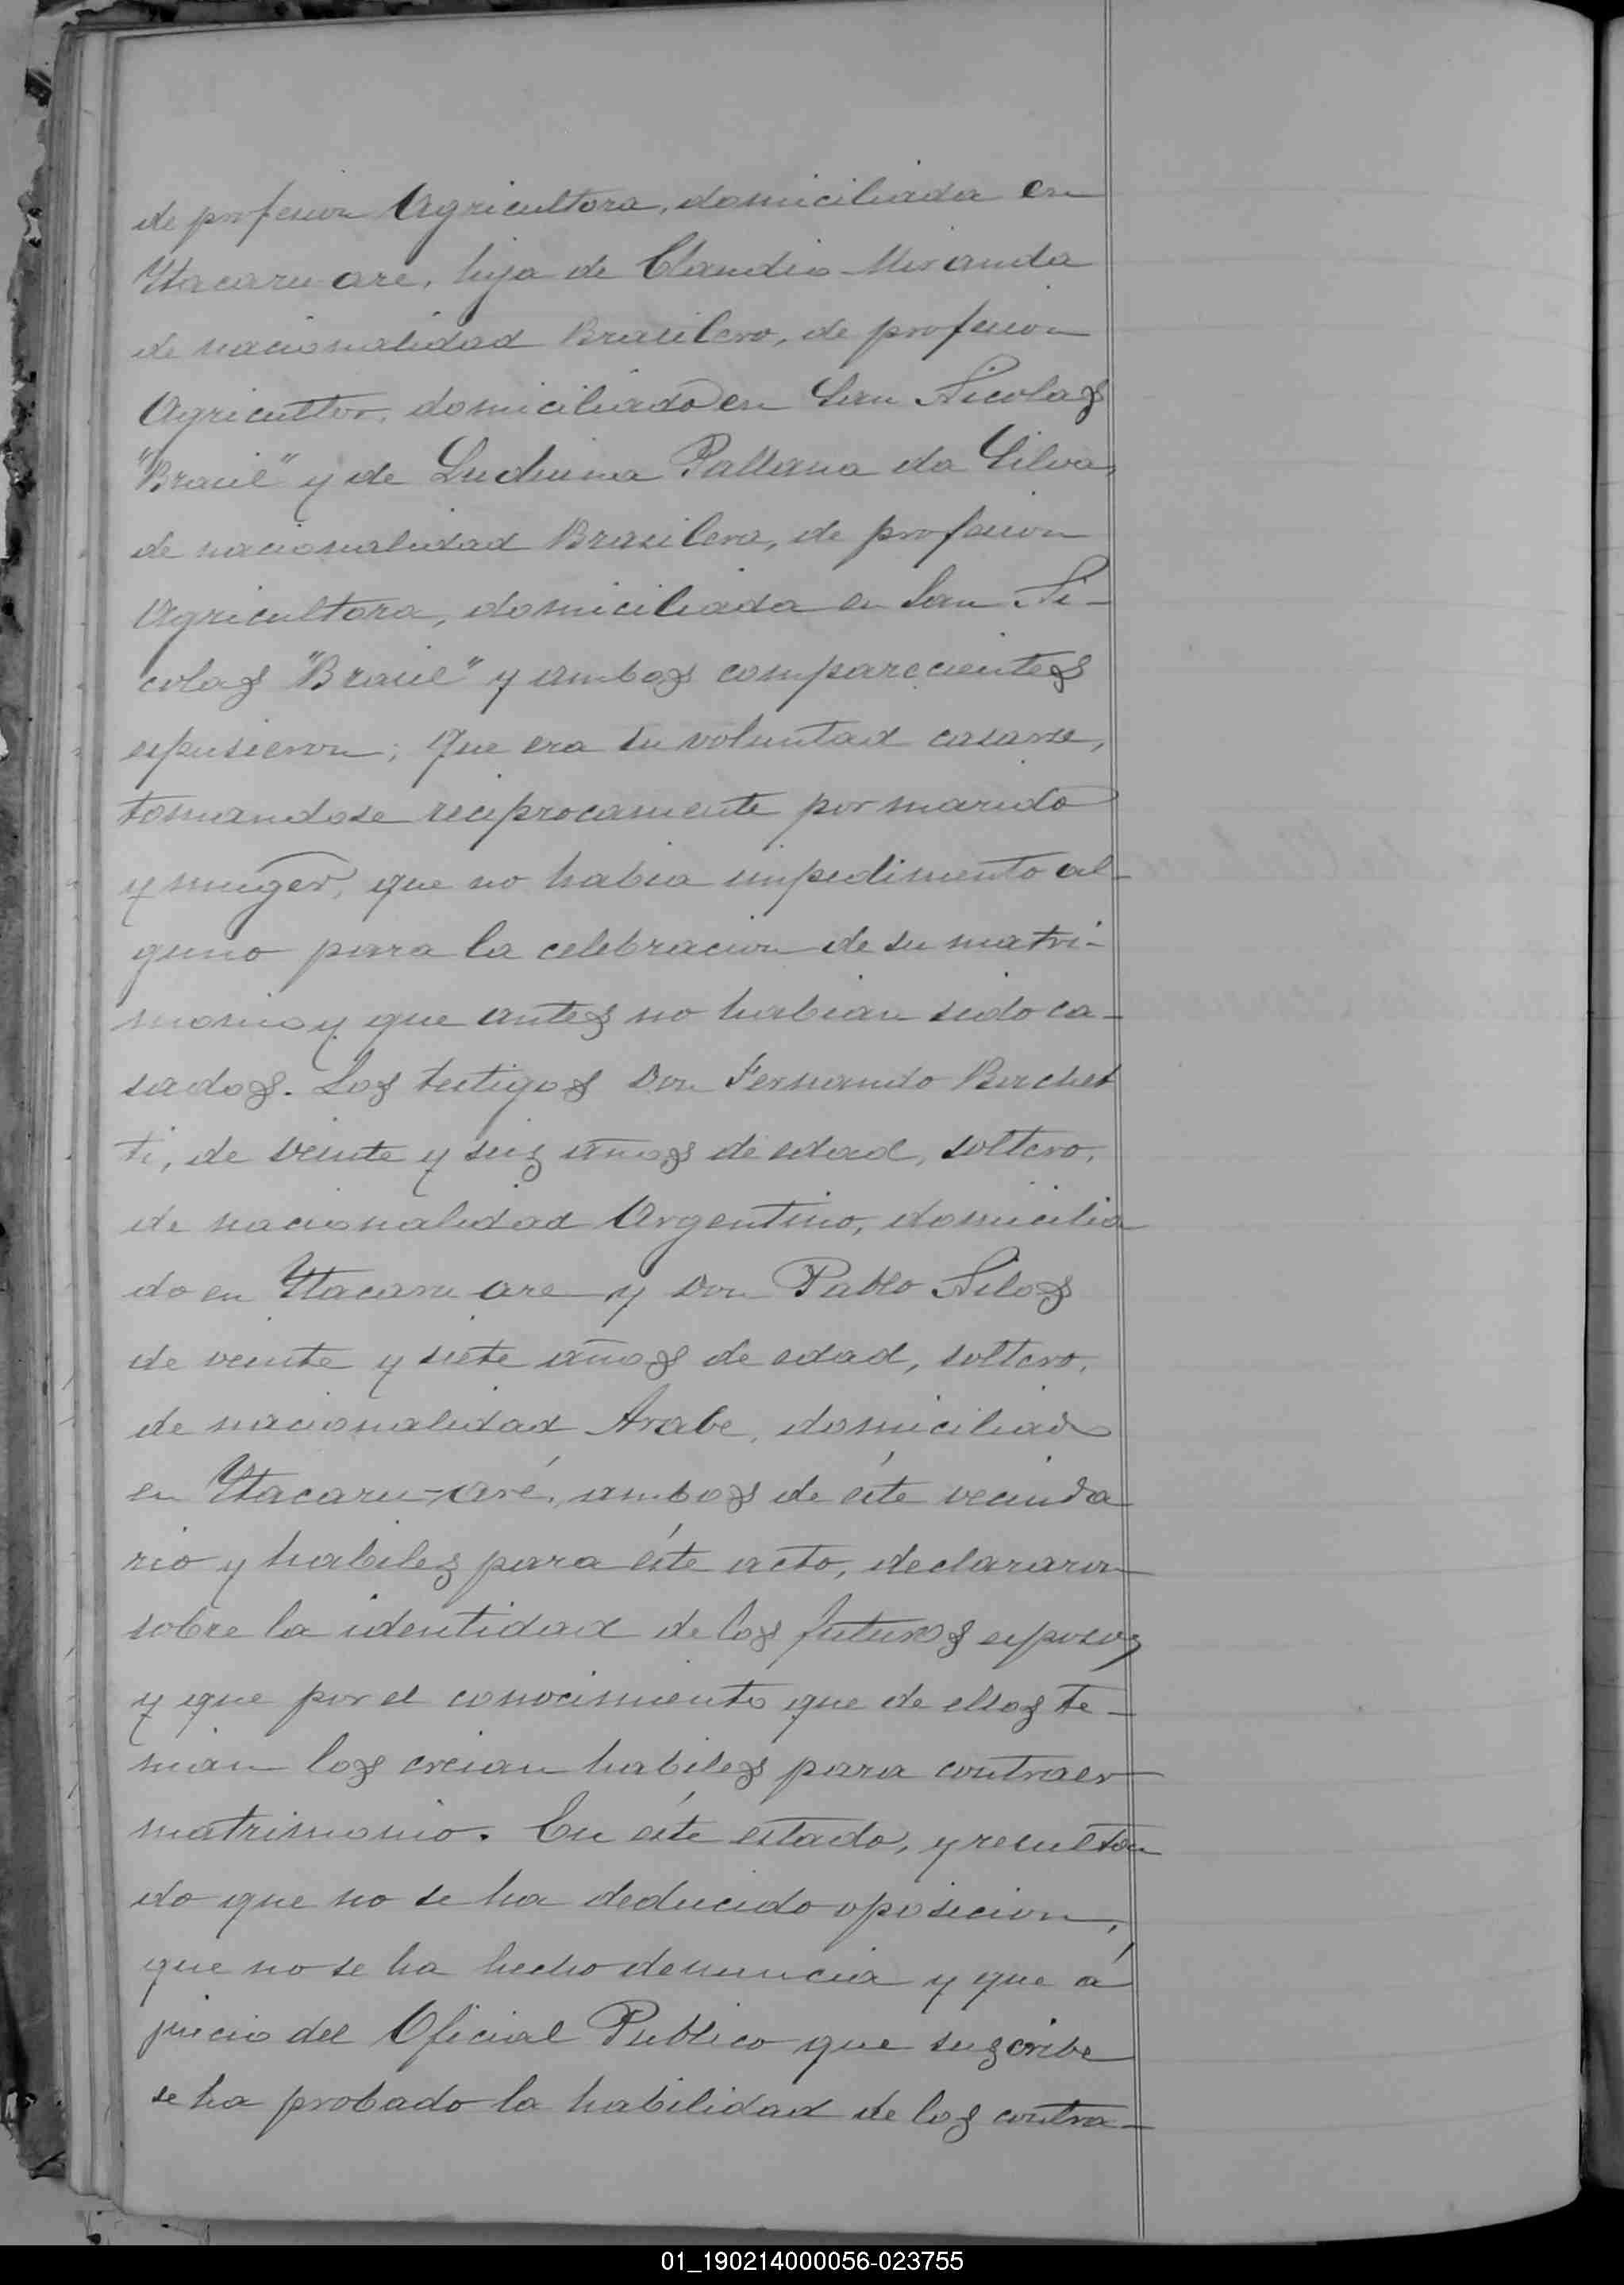 de profesion Agricultora, domiciliada en
Ytacaru are, hija de Claudio Miranda
de nacionalidad Brasilero, de profesion
Agricultor, domiciliado en San Nicolas
"Brasil" y de da Silva,
de nacionalidad Brasilera, de profesion
Agricultora, domiciliada en San Ni-
colas "Brasil" y ambos comparecientes
espusieron; Que era su voluntad casarse,
tomandose reciprocamente por marido
y muger, que no habia impedimento al-
guno para la celebracion de su matri-
monio y que antes no habian sido ca-
sados. Los testigos Don Fernando Borchet
ti, de veinte y seis años de edad, soltero,
de nacionalidad Argentino, domicilia
do en Ytacaru are y Don Pablo Nilos
de veinte y siete años de edad, soltero,
de nacionalidad Arabe, domiciliado
en Ytacaru-aré, ambos de éste vecinda
rio y habiles para éste acto, declararon
sobre la identidad de los futuros esposos
y que por el conocimiento que de ellos te-
nian los creian habiles para contraer
matrimonio. En éste estado, y resultan
do que no se ha deducido oposicion,
que no se ha hecho denuncia y que á
juicio del Oficial Publico que suscribe
se ha probado la habilidad de los contra-
01_190214000056-023755